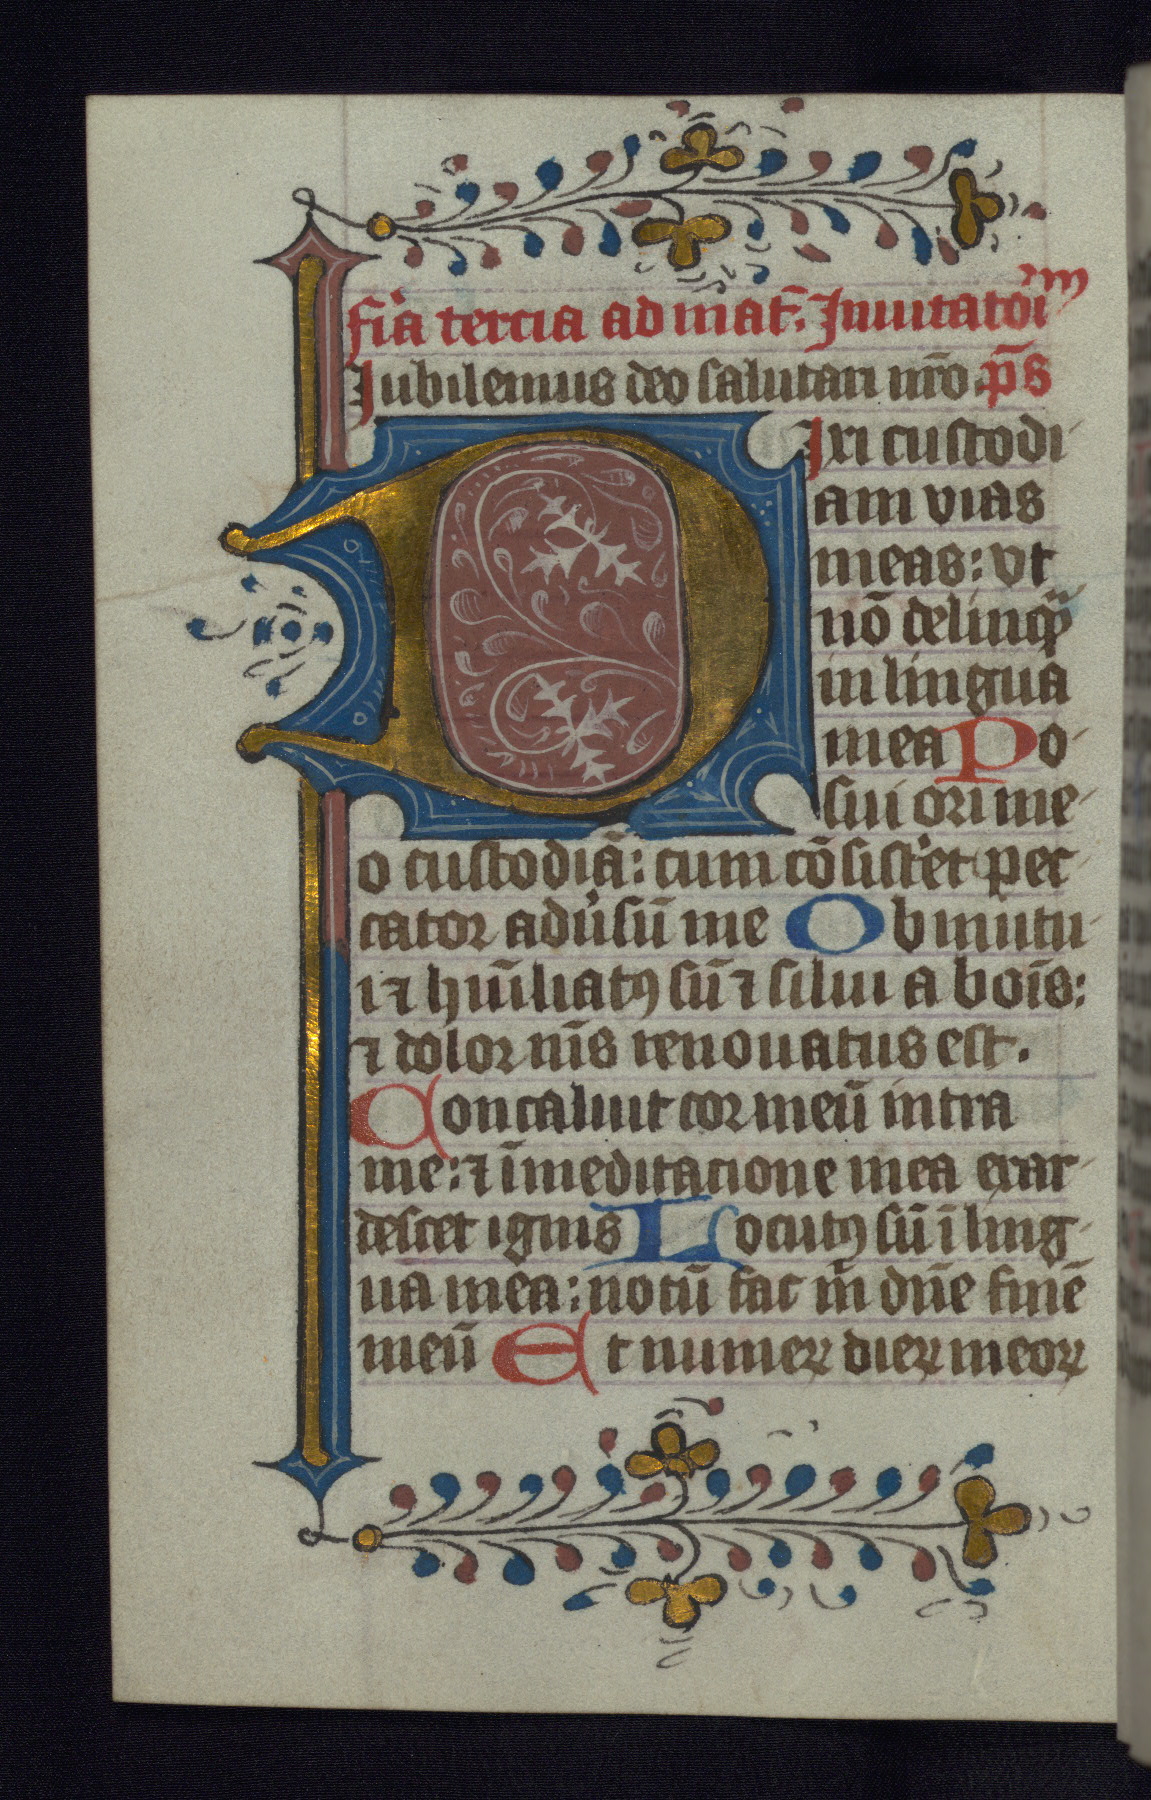 fīa tercia ad mat̄. Inuitatoīrm
Iubilemus deo salutari nr̄o. p̄s
DIxi custodi
am vias
meas: vt
nō delinquā
in lingua
mea Po-
sui ori me-
o custodiā: cum cōsist'et pec-
cator adu'sū me Obmutu-
i ⁊ hūiliatꝯ sū ⁊ silui a boīs:
⁊ dolor mīs renouatus est.
Concaluit cor meū intra
me: ⁊ ī meditacione mea exar-
descet ignis Locutꝯ sū ī ling-
ua mea: notū fac m̄ dn̄e finē
meū Et numeꝝ dieꝝ meoꝝ